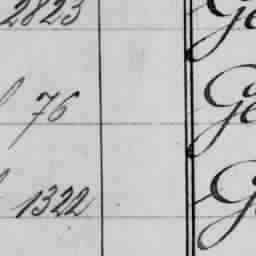 2823 Ge
76 Ge
1322 Ge